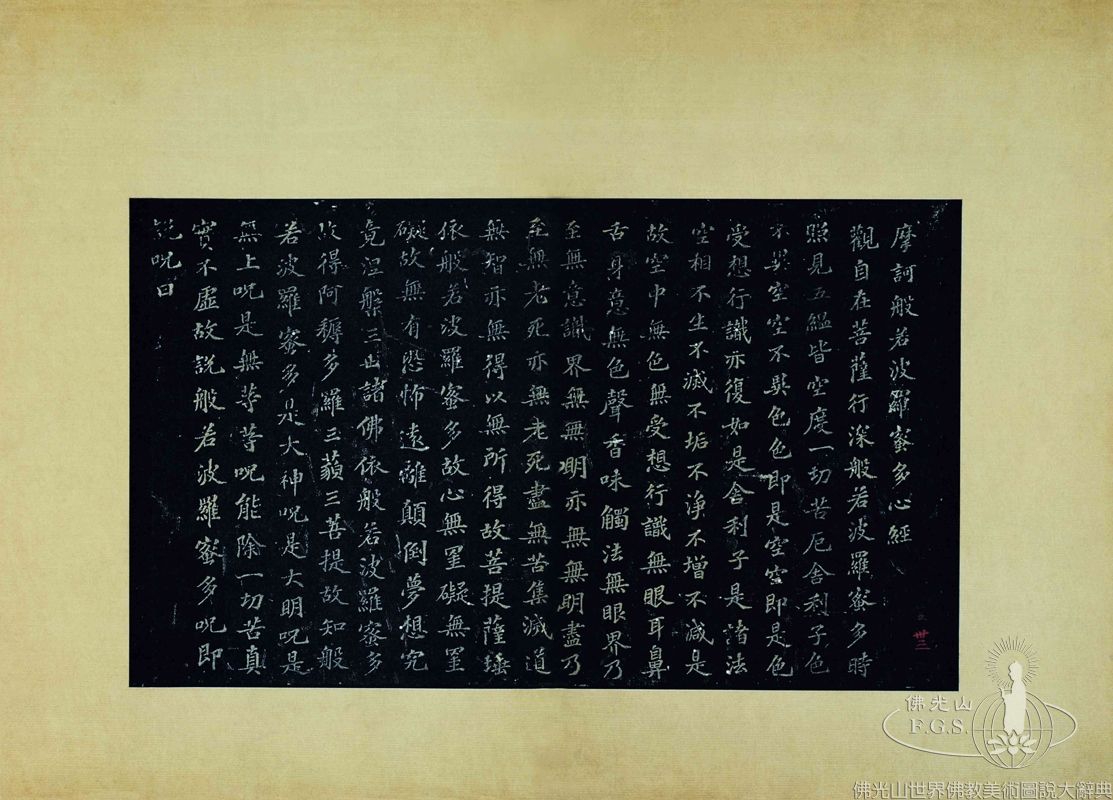 摩訶般若波羅蜜多心經
觀自在菩薩行深般若波羅蜜多時
照見五緼皆空度一切苦厄舍利子色
不異空空不異色色即是空空即是色
受想行識亦復如是舍利子是諸法
空相不生不滅不垢不淨不增不減是
故空中無色無受想行識無眼耳鼻
舌身意無色聲香味觸法無眼界乃
至無意識界無無明亦無無明盡乃
至無老死亦無老死盡無苦集滅道
無智亦無得以無所得故菩提薩埵
依般若波羅蜜多故心無罣礙無罣
礙故無有恐怖遠離顛倒夢想究
竟涅槃三世諸佛依般若波羅蜜多
故得阿耨多羅三藐三菩提故知般
若波羅蜜多是大神呪是大明呪是
無上呪是無等等呪能除一切苦真
實不虛故説般若波羅蜜多呪即
説呪曰
卅三
佛光山
F.G.S.
佛光山世界佛教美術圖說大辭典